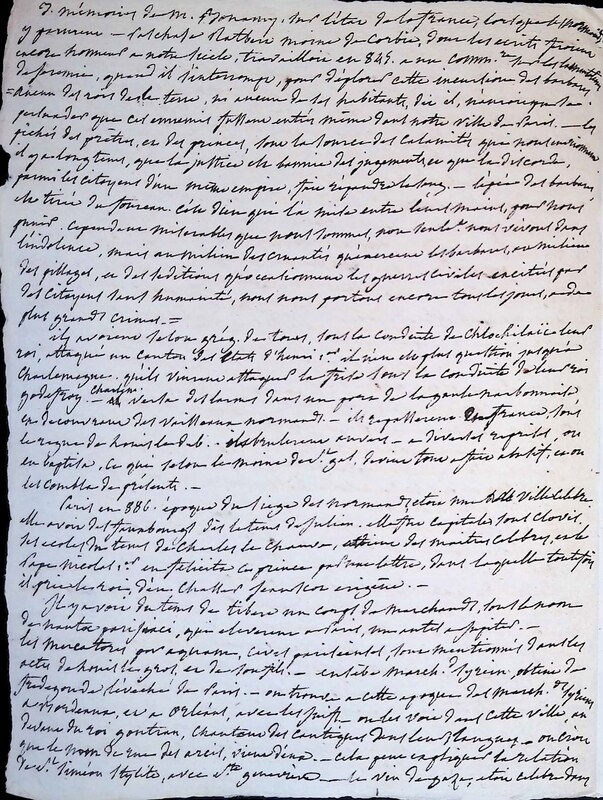 3. mémoires de M. Bonamy, sur l'état de la france, lorsque les normands
y parurent — Paschase Ratbert moine de Corbie, dont les écrits trouvent
encore honneur a notre siècle, travailloit en 845. a un comm.re sur les lamentations
de jérémie, quand il s'interrompt, pour déplorer cette incursion des barbares,
= aucun des rois de la terre, ni aucun de ses habitants, dit il, n'auroient pu se
persuader que ces ennemis fussent entrés même dans notre ville de Paris. — les
péchés des prêtres, et des princes, sont la source des calamités que nous
il y a longtems, que la justice est bannie des jugements, et que la discorde,
parmi les citoyens d'un même empire, fait répandre le sang. — l'épée des barbares,
est tirée du foureau. c'est dieu qui l'a mise entre leurs mains, pour nous
punir. cependant misérables que nous sommes, non seulemt. nous vivons dans
l'indolence, mais au milieu des cruautés qu'exercent les barbares, au milieu
des pillages, et des séditions qu'occasionnent les guerres civiles excitées par
des citoyens sans humanité, nous nous portons encore tous les jours, a de
plus grands crimes. =
ils avoient selon grég. de tours, sous la conduite de Chlochilaic leur
roi, attaqué un canton des Etats il n'en est plus question jusqu'à
Charlemagne. qu'ils vinrent attaquer la frise sous la conduite de leur roi
godefroy. — Charlem. versa des larmes dans un port de la gaule narbonnaise
en découvrant des vaisseaux normands. — ils repasserent En france, sous
le regne de Louis le deb. — ils brulerent anvers — a diverses reprises, on
en baptisa, ce que selon le moine de St. gal, devint tout a fait abusif, et on
les combla de présents. —
Paris en 886. époque du siege des normands, etoit une ville célebre
elle avoit des fauxbourgs dès le tems de julien. elle fut capitale sous Clovis.
ses ecoles du tems de Charles le Chauve, des maîtres célebres, et le
Pape nicolas 1er. en felicita ce prince par une lettre, dans laquelle toutefois
il prie le roi, d'en chasser jean scot erigène. —
Il y avoit du tems de tibere un corps de marchands, sous le nom
de nautae parisiaci, qui eleverent a Paris, un autel a jupiter. —
les mercatores per aquam, cives parisienses, sont mentionnés dans les
actes de Louis le gros, et de son fils. — eusèbe march. d. syrien, obtint de
fredegonde l'évêché de Paris. — on trouve a cette epoque des march. ds. syriens
a Bordeaux, et a Orléans, avec les juifs — on les voit dans cette ville, au
devant du roi gontran, chantant des cantiques dans leur langue — on croit
que le nom de rue des arcis, vient — cela peut expliquer la relation
de St. Siméon Stylite, avec Ste. genevieve — le vin de gaze, etoit célebre dans